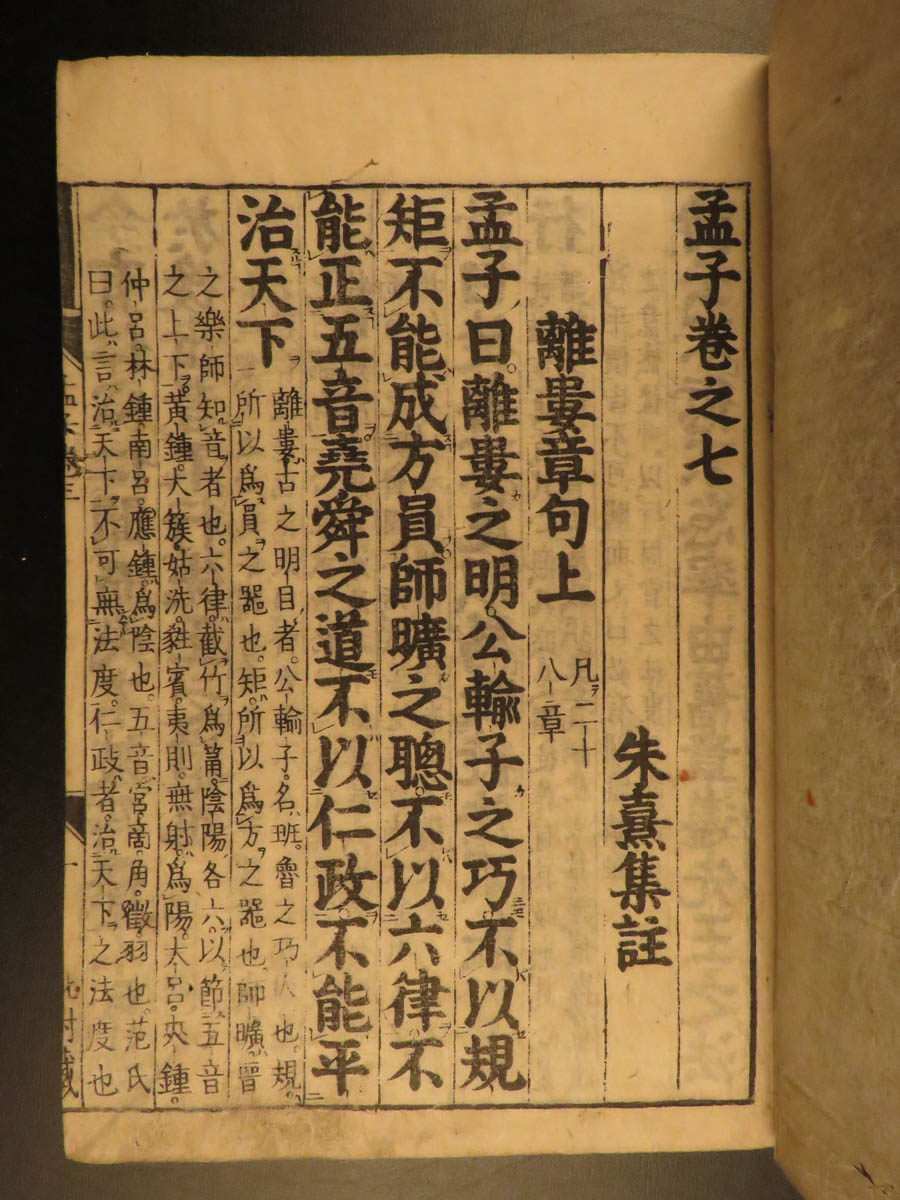 孟子卷之七
朱熹集註
離婁章句上
凡二十
八章
孟子曰。離婁之明。公輸子之巧。不以規
矩不能成方員師曠之聰不以六律。不
能正五音堯舜之道不以仁政。不能平
治天下
離婁古之明目者。公輸子。名班。魯之巧人也。規。
所以爲員之器也。矩。所以爲方之器也師曠晉
之樂師知音者也。六律。截竹爲筩。陰陽各六。以節五音
之上下。黃鍾大簇姑洗蕤賓夷則無射爲陽。大呂夾鍾。
仲呂林鍾南呂應鍾爲陰也。五音宮商角徵羽也。范氏
曰。此言治天下不可無法度。仁政者治天下之法度也